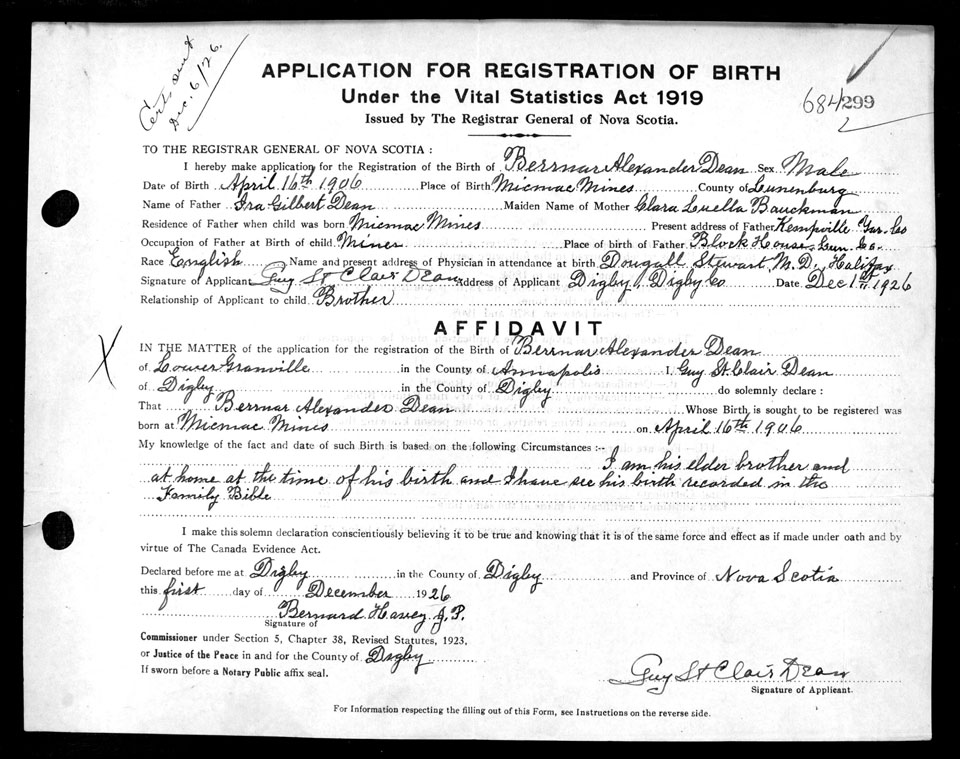 Cert. sent
Dec. 6/26.
APPLICATION FOR REGISTRATION OF BIRTH
Under the Vital Statistics Act 1919
Issued by The Registrar General of Nova Scotia.
684299
2
TO THE REGISTRAR GENERAL OF NOVA SCOTIA :
I hereby make application for the Registration of the Birth of Bernnar Alexander Dean Sex Male
Date of Birth April 16th 1906 Place of Birth Micmac Mines County of Lunenburg
Name of Father Ira Gilbert Dean Maiden Name of Mother Clara Luella Bauckman
Residence of Father when child was born Micmac Mines Present address of Father Kempville Yar. Co
Occupation of Father at Birth of child Miner Place of birth of Father Block House, Lun. Co.
Race English Name and present address of Physician in attendance at birth Dougall Stewart M.D., Halifax
Signature of Applicant Guy St Clair Dean Address of Applicant Digby, Digby Co Date Dec 1st 1926
Relationship of Applicant to child Brother
AFFIDAVIT
X
IN THE MATTER of the application for the registration of the Birth of Bernnar Alexander Dean
of Lower Granville in the County of Annapolis I, Guy St. Clair Dean
of Digby in the County of Digby do solemnly declare :
That Bernnar Alexander Dean Whose Birth is sought to be registered was
born at Micmac Mines on April 16th 1906
My knowledge of the fact and date of such Birth is based on the following Circumstances :-
I am his elder brother and
at home at the time of his birth and I have see his birth recorded in the
Family Bible
I make this solemn declaration conscientiously believing it to be true and knowing that it is of the same force and effect as if made under oath and by
virtue of The Canada Evidence Act.
Declared before me at Digby in the County of Digby and Province of Nova Scotia
this first day of December 1926
Bernard Havey J.P.
Signature of
Commissioner under Section 5, Chapter 38, Revised Statutes, 1923,
or Justice of the Peace in and for the County of Digby
If sworn before a Notary Public affix seal.
Guy St Clair Dean
Signature of Applicant.
For Information respecting the filling out of this Form, see Instructions on the reverse side.